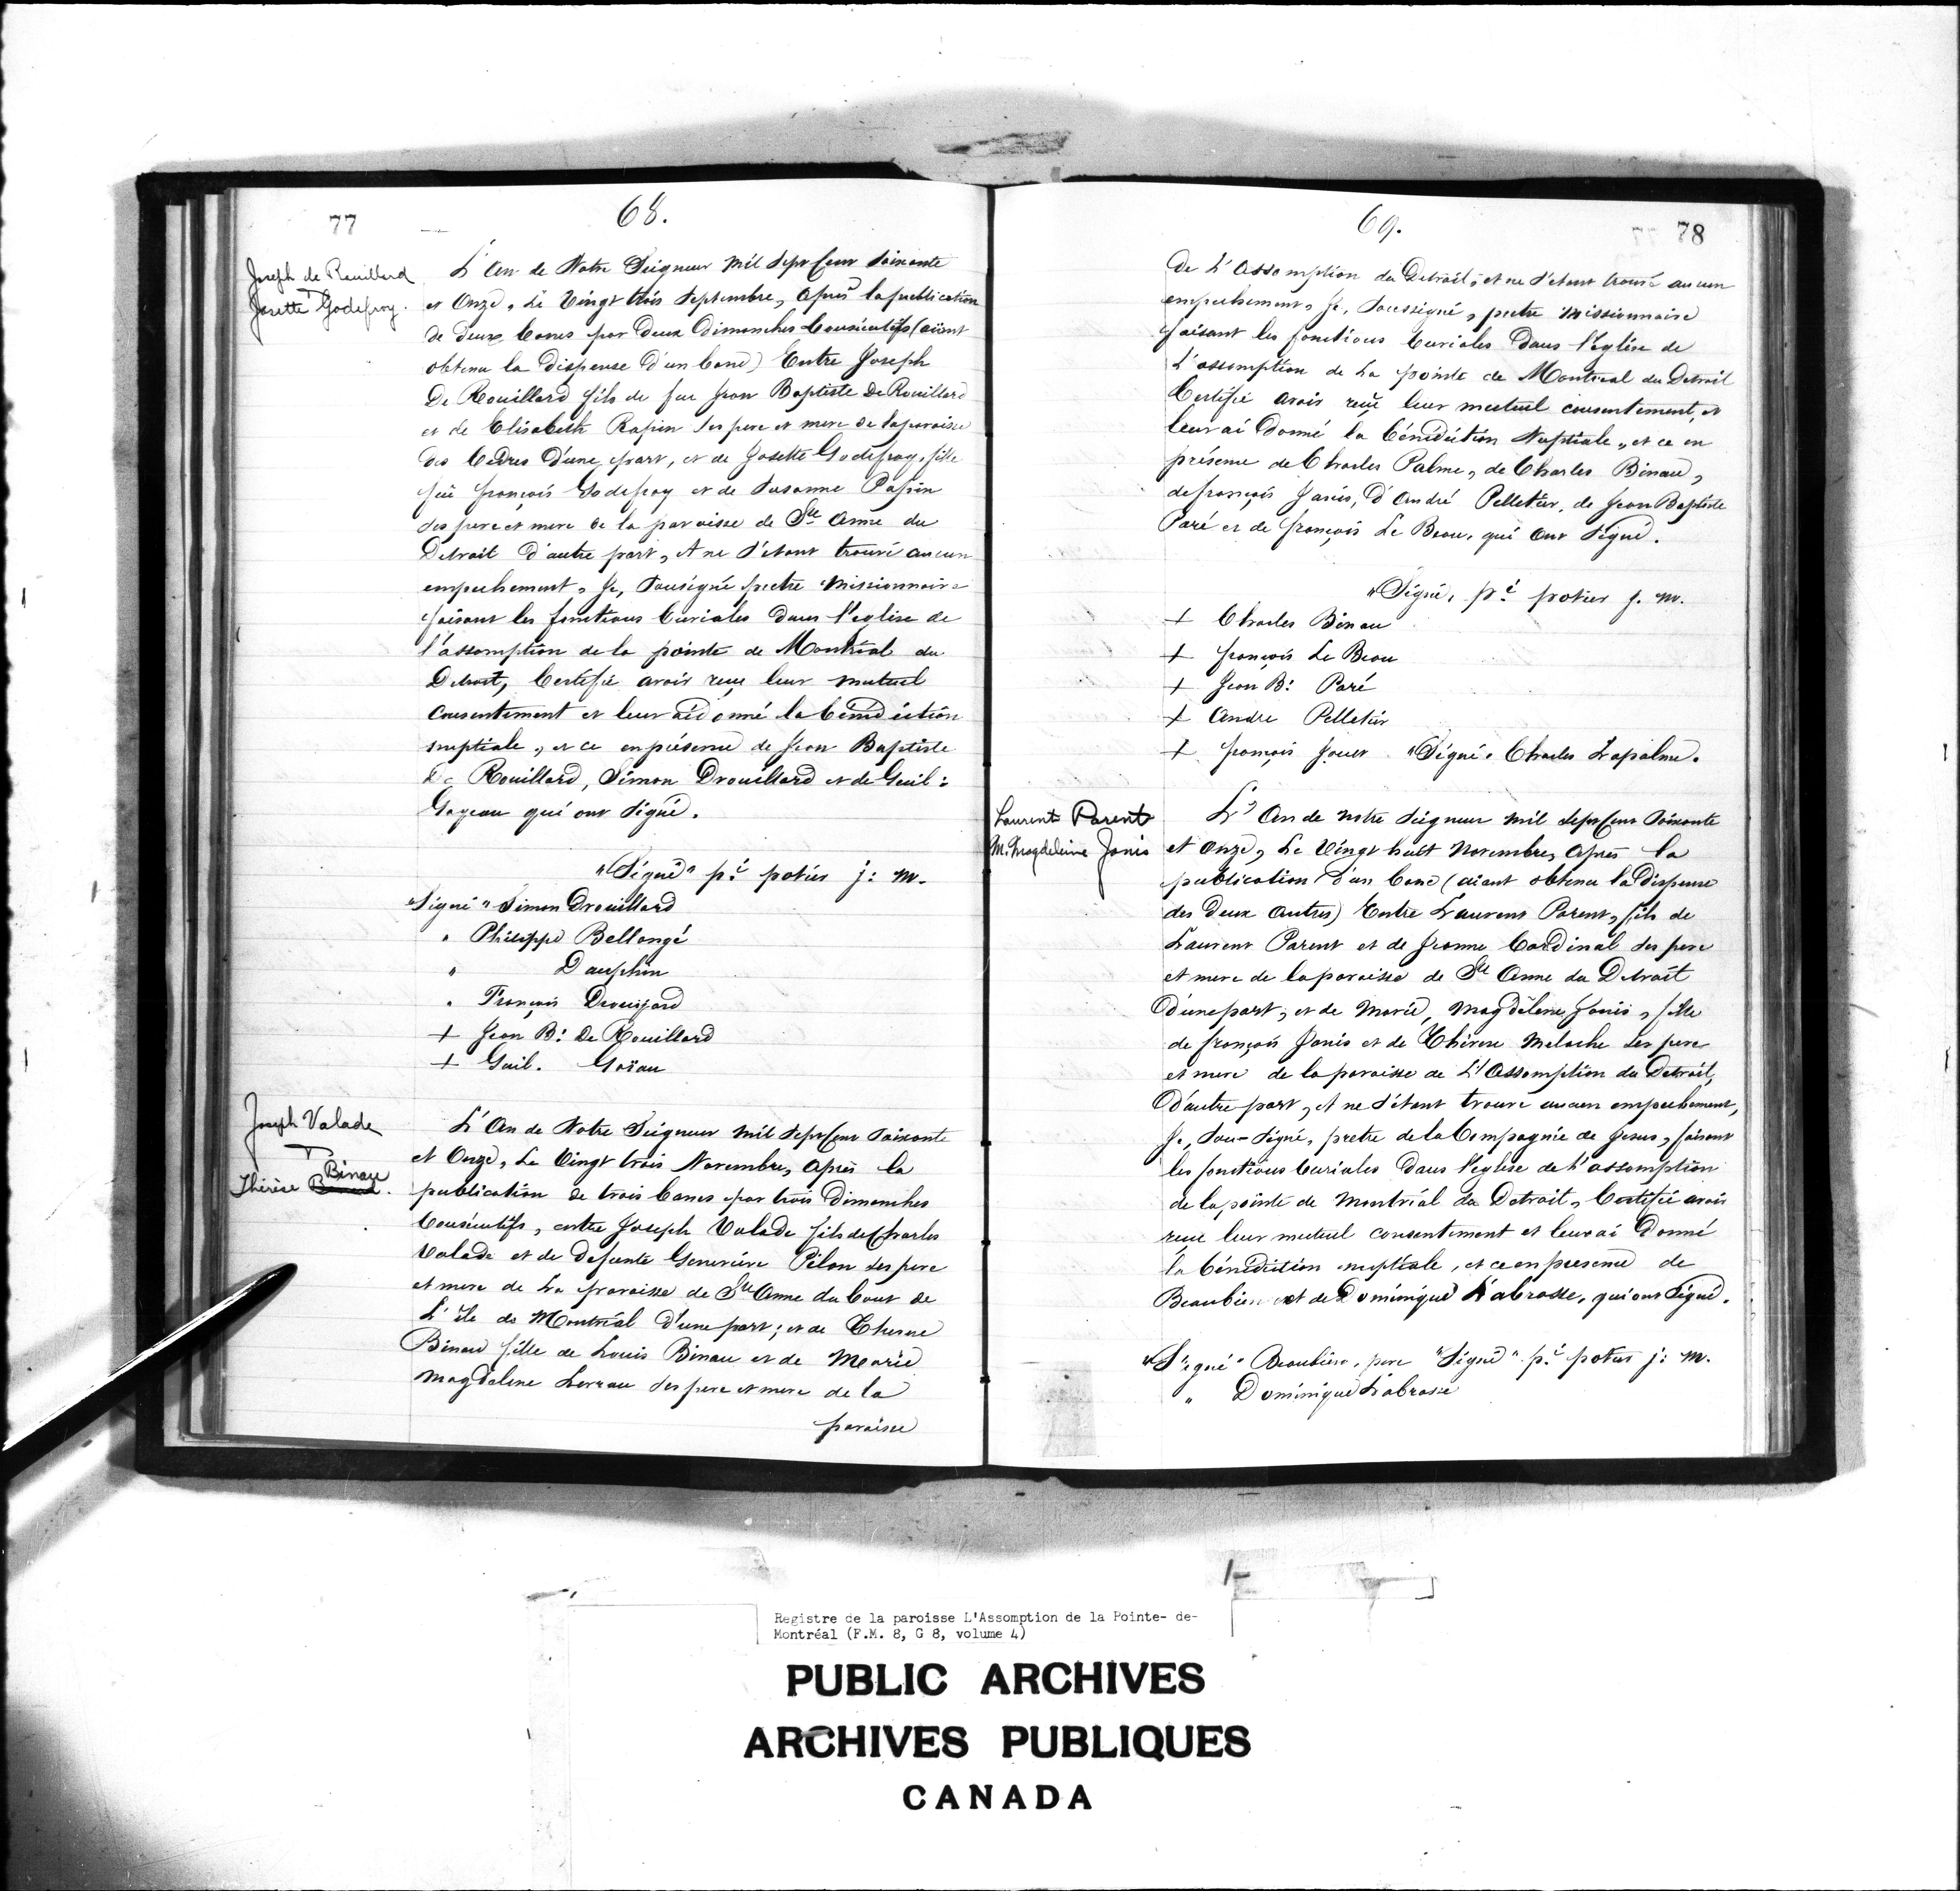 77
68.
Joseph de Rouillard
Josette Godefroy.
L'An de Notre Seigneur mil Sept Cent Soixante
et Onze, Le Vingt trois Septembre, après la publication
de deux bancs par deux Dimanches Consécutifs (aiant
obtenu la dispense d'un banc) Entre Joseph
De Rouillard fils de feu Jean Baptiste De Rouillard
et de Elisabeth Rapin ses pere et mere de la paroisse
des Cedres d'une part, et de Josette Godefroy, fille
feu françois Godefroy et de Susanne Papin
ses pere et mere de la paroisse de Ste Anne du
Detroit d'autre part, et ne s'etant trouvé aucun
empechement, Je, Sousigné pretre missionnaire
faisant les fonctions Curiales dans l'eglise de
l'assomption de la pointe de Montréal du
Detroit, Certifie avoir reçu leur mutuel
Consentement et leur ai donné la bénédiction
nuptiale, et ce en présence de Jean Baptiste
De Rouillard, Simon Drouillard et de Guil:
Goyeau qui ont signé.
"Signé" pr potier j: m.
"Signé" Simon Drouillard
" Philippe Bellangé
" Dauphin
" François Drouijard
+ Jean B: De Rouillard
+ Guil. Goïau
Joseph Valade
Binau
Thérèse
L'An de Notre Seigneur mil Sept Cent Soixante
et Onze, Le Vingt trois Novembre, après la
publication de trois bancs par trois Dimanches
Consécutifs, entre Joseph Valade fils de Charles
Valade et de defunte Genevieve Pilon ses pere
et mere de La paroisse de Ste Anne du bout de
L'île de Montréal d'une part; et de Therese
Binau fille de Louis Binau et de Marie
Magdelene Lereau ses pere et mere de la
paroisse
69.
78
De L'Assomption du Detroit, et ne s'etant trouvé aucun
empechement, Je, Soussigné, pretre missionnaire
faisant les fonctions Curiales dans l'eglise de
L'assomption de La pointe de Montreal du Detroit
Certifie avoir reçu leur mutuel consentement, et
leur ai donné la bénédiction Nuptiale, et ce en
présence de Charles Palme, de Charles Binau,
de françois Janis, d'André Pelletier, de Jean Baptiste
Paré et de françois Le Beau, qui ont signé.
"Signé, pr potier j. m.
+ Charles Binau
+ françois Le Beau
+ Jean B: Paré
+ Andre Pelletier
+ françois "Signé" Charles Lapalme.
Laurent Parent
M. Magdeleine Janis
L'An de notre Seigneur mil Sept Cent Soixante
et onze, Le Vingt huit Novembre, après la
publication d'un banc (aiant obtenu la dispense
des deux autres) Entre Laurent Parent, fils de
Laurent Parent et de Jeanne Cardinal ses pere
et mere de la paroisse de Ste Anne du Detroit
d'une part, et de Marie, Magdelene Janis, fille
de françois Janis et de Thérese Meloche ses pere
et mere de la paroisse de L'Assomption du Detroit,
d'autre part, et ne s'etant trouvé aucun empechement,
Je, Sou-Signé, pretre de la Compagnie de Jesus, faisant
les fonctions Curiales dans l'eglise de l'assomption
de la pointe de Montréal du Detroit, Certifie avoir
reçu leur mutuel consentement et leur ai donné
la bénédiction nuptiale, et ce en presence de
Beaubien et de Dominique Labrosse, qui ont signé.
"Signé" Beaubien, pere "Signé" pr potier j: m.
" Dominique Labrosse
Registre de la paroisse L'Assomption de la Pointe- de-
Montréal (F.M. 8, G 8, volume 4)
PUBLIC ARCHIVES
ARCHIVES PUBLIQUES
CANADA